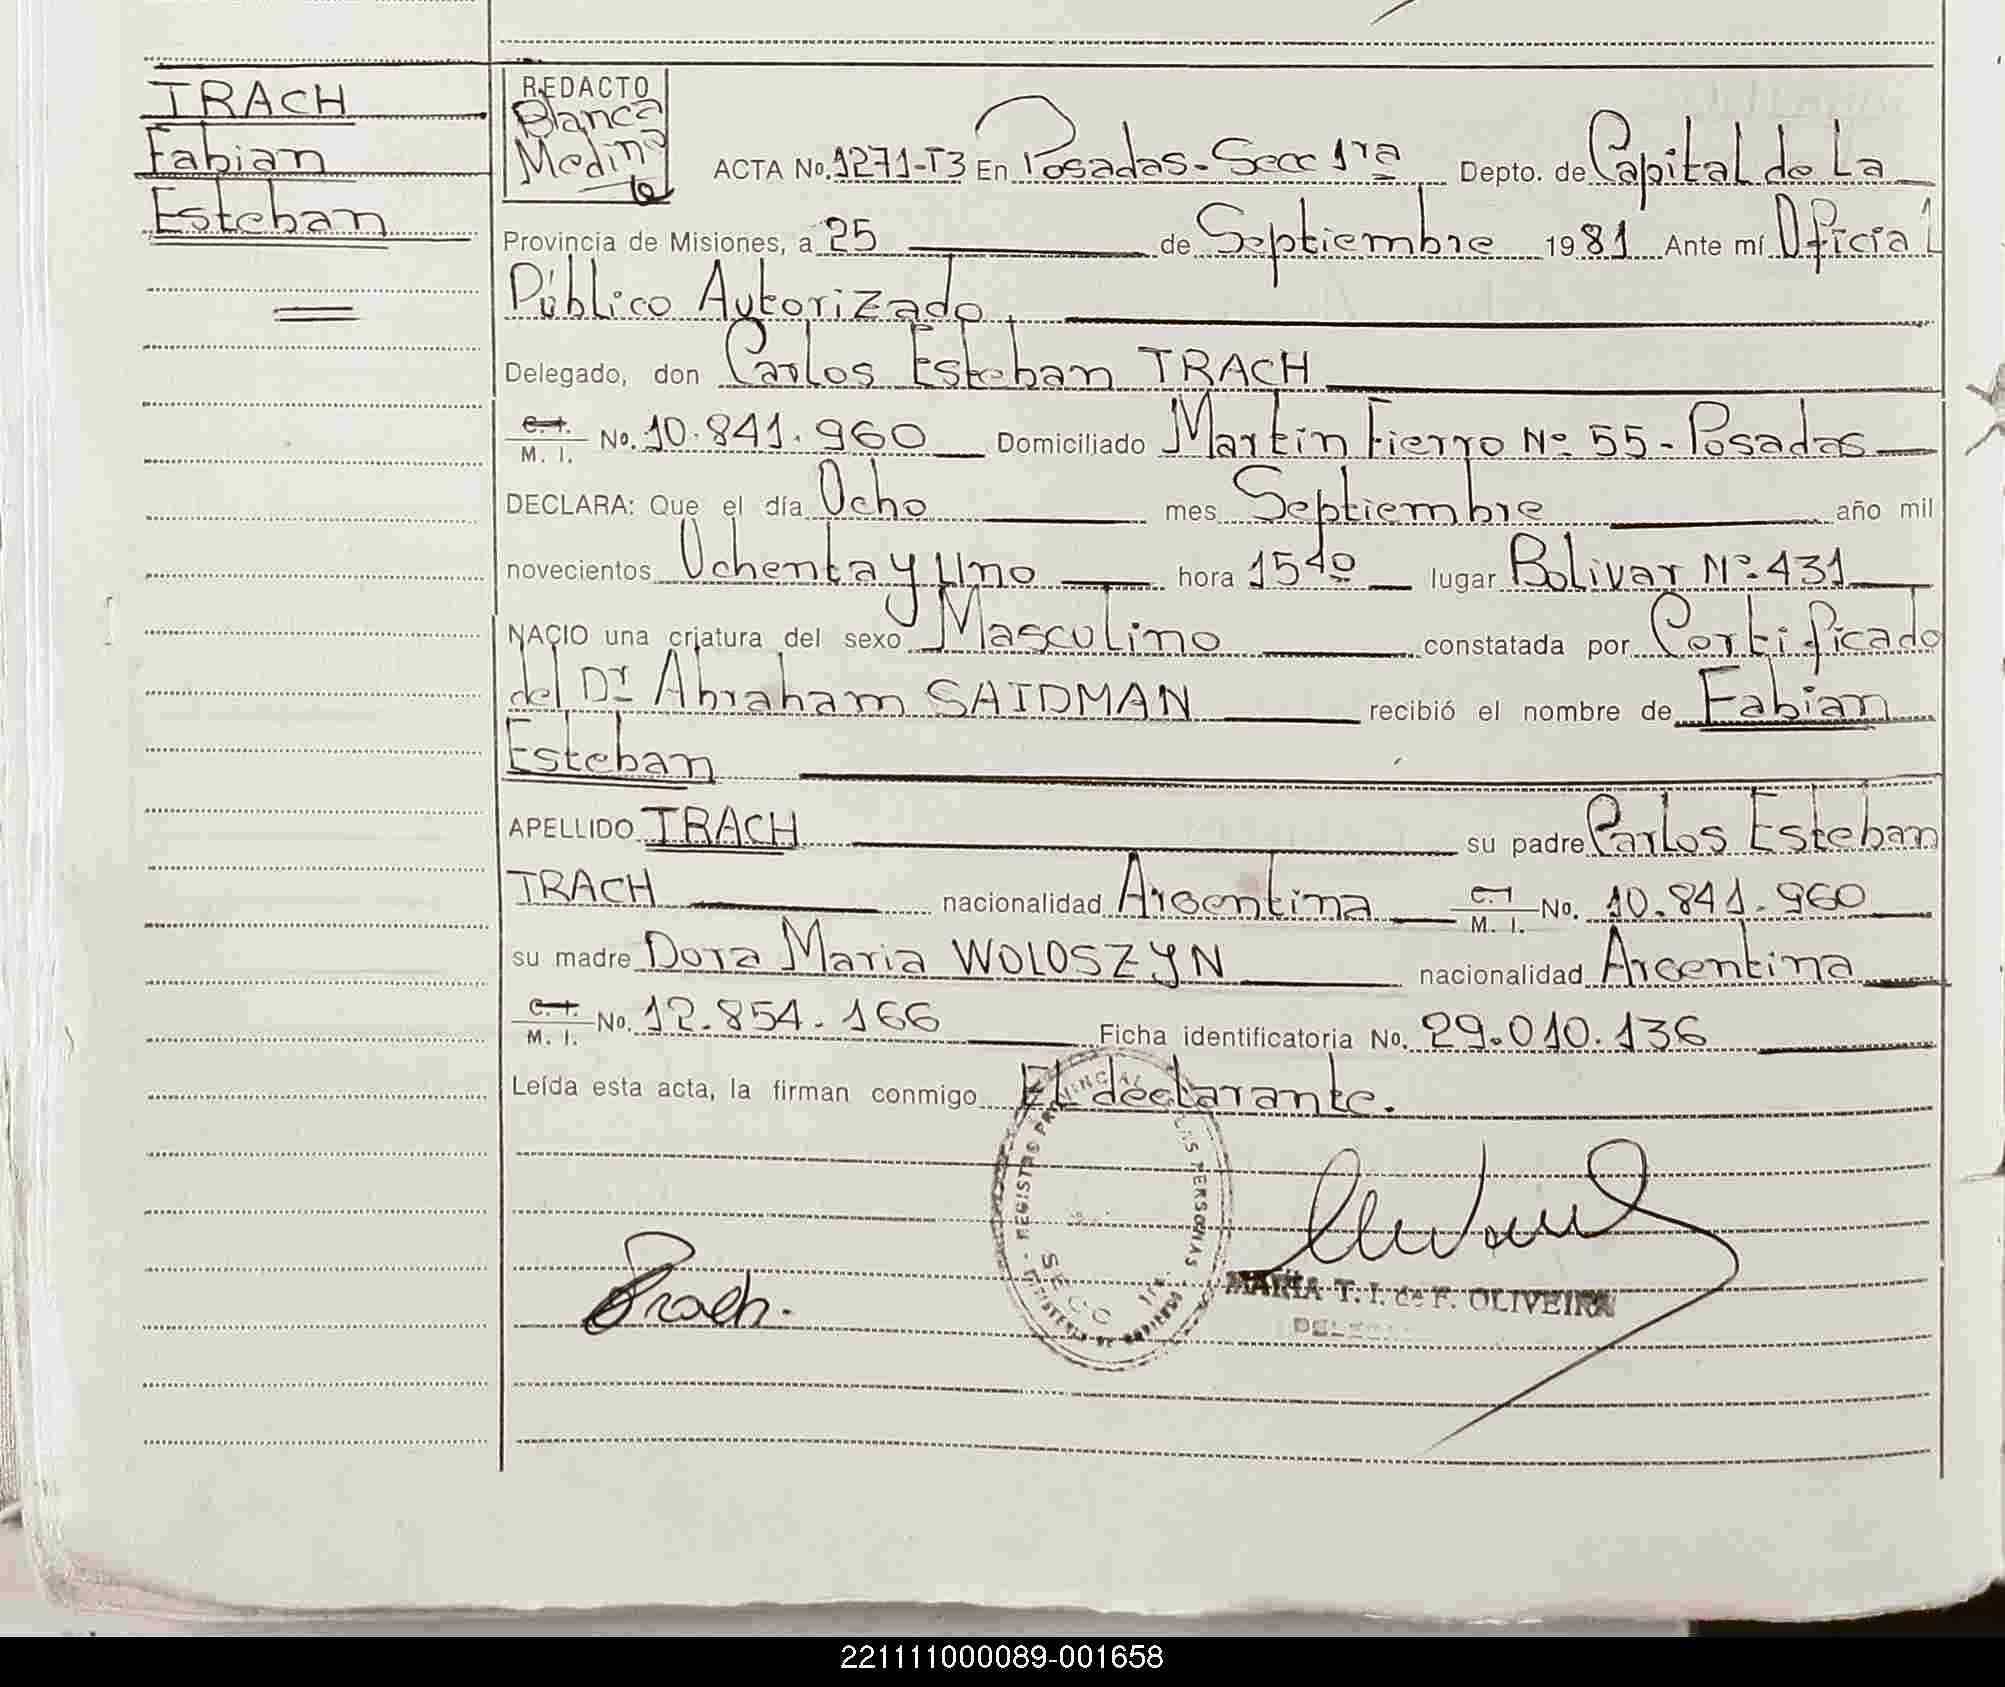 TRACH
Fabian
Esteban
REDACTO
Blanca
Medina
ACTA No. 1271-T3 En Posadas-Secc 1ra Depto. de Capital de La
Provincia de Misiones, a 25 de Septiembre 1981 Ante mí Oficial
Público Autorizado
Delegado, don Carlos Esteban TRACH
C.I. M. I. No. 10.841.960 Domiciliado Martin Fierro Nº 55-Posadas
DECLARA: Que el día Ocho mes Septiembre año mil
novecientos Ochenta y Uno hora 15 40 lugar Bolivar Nº 431
NACIO una criatura del sexo Masculino constatada por Certificado
del Dr Abraham SAIDMAN recibió el nombre de Fabian
Esteban
APELLIDO TRACH su padre Carlos Esteban
TRACH nacionalidad Argentina C.I M. I. No. 10.841.960
su madre Dora Maria WOLOSZYN nacionalidad Argentina
C.I. M. I. No. 12.854.166 Ficha identificatoria No. 29.010.136
Leída esta acta, la firman conmigo El declarante.
REGISTRO PROVINCIAL DE LAS PERSONAS
SECC 1ra
MINISTERIO DE GOBIERNO
Trach.
MARIA T. I. de F. OLIVEIRA
221111000089-001658